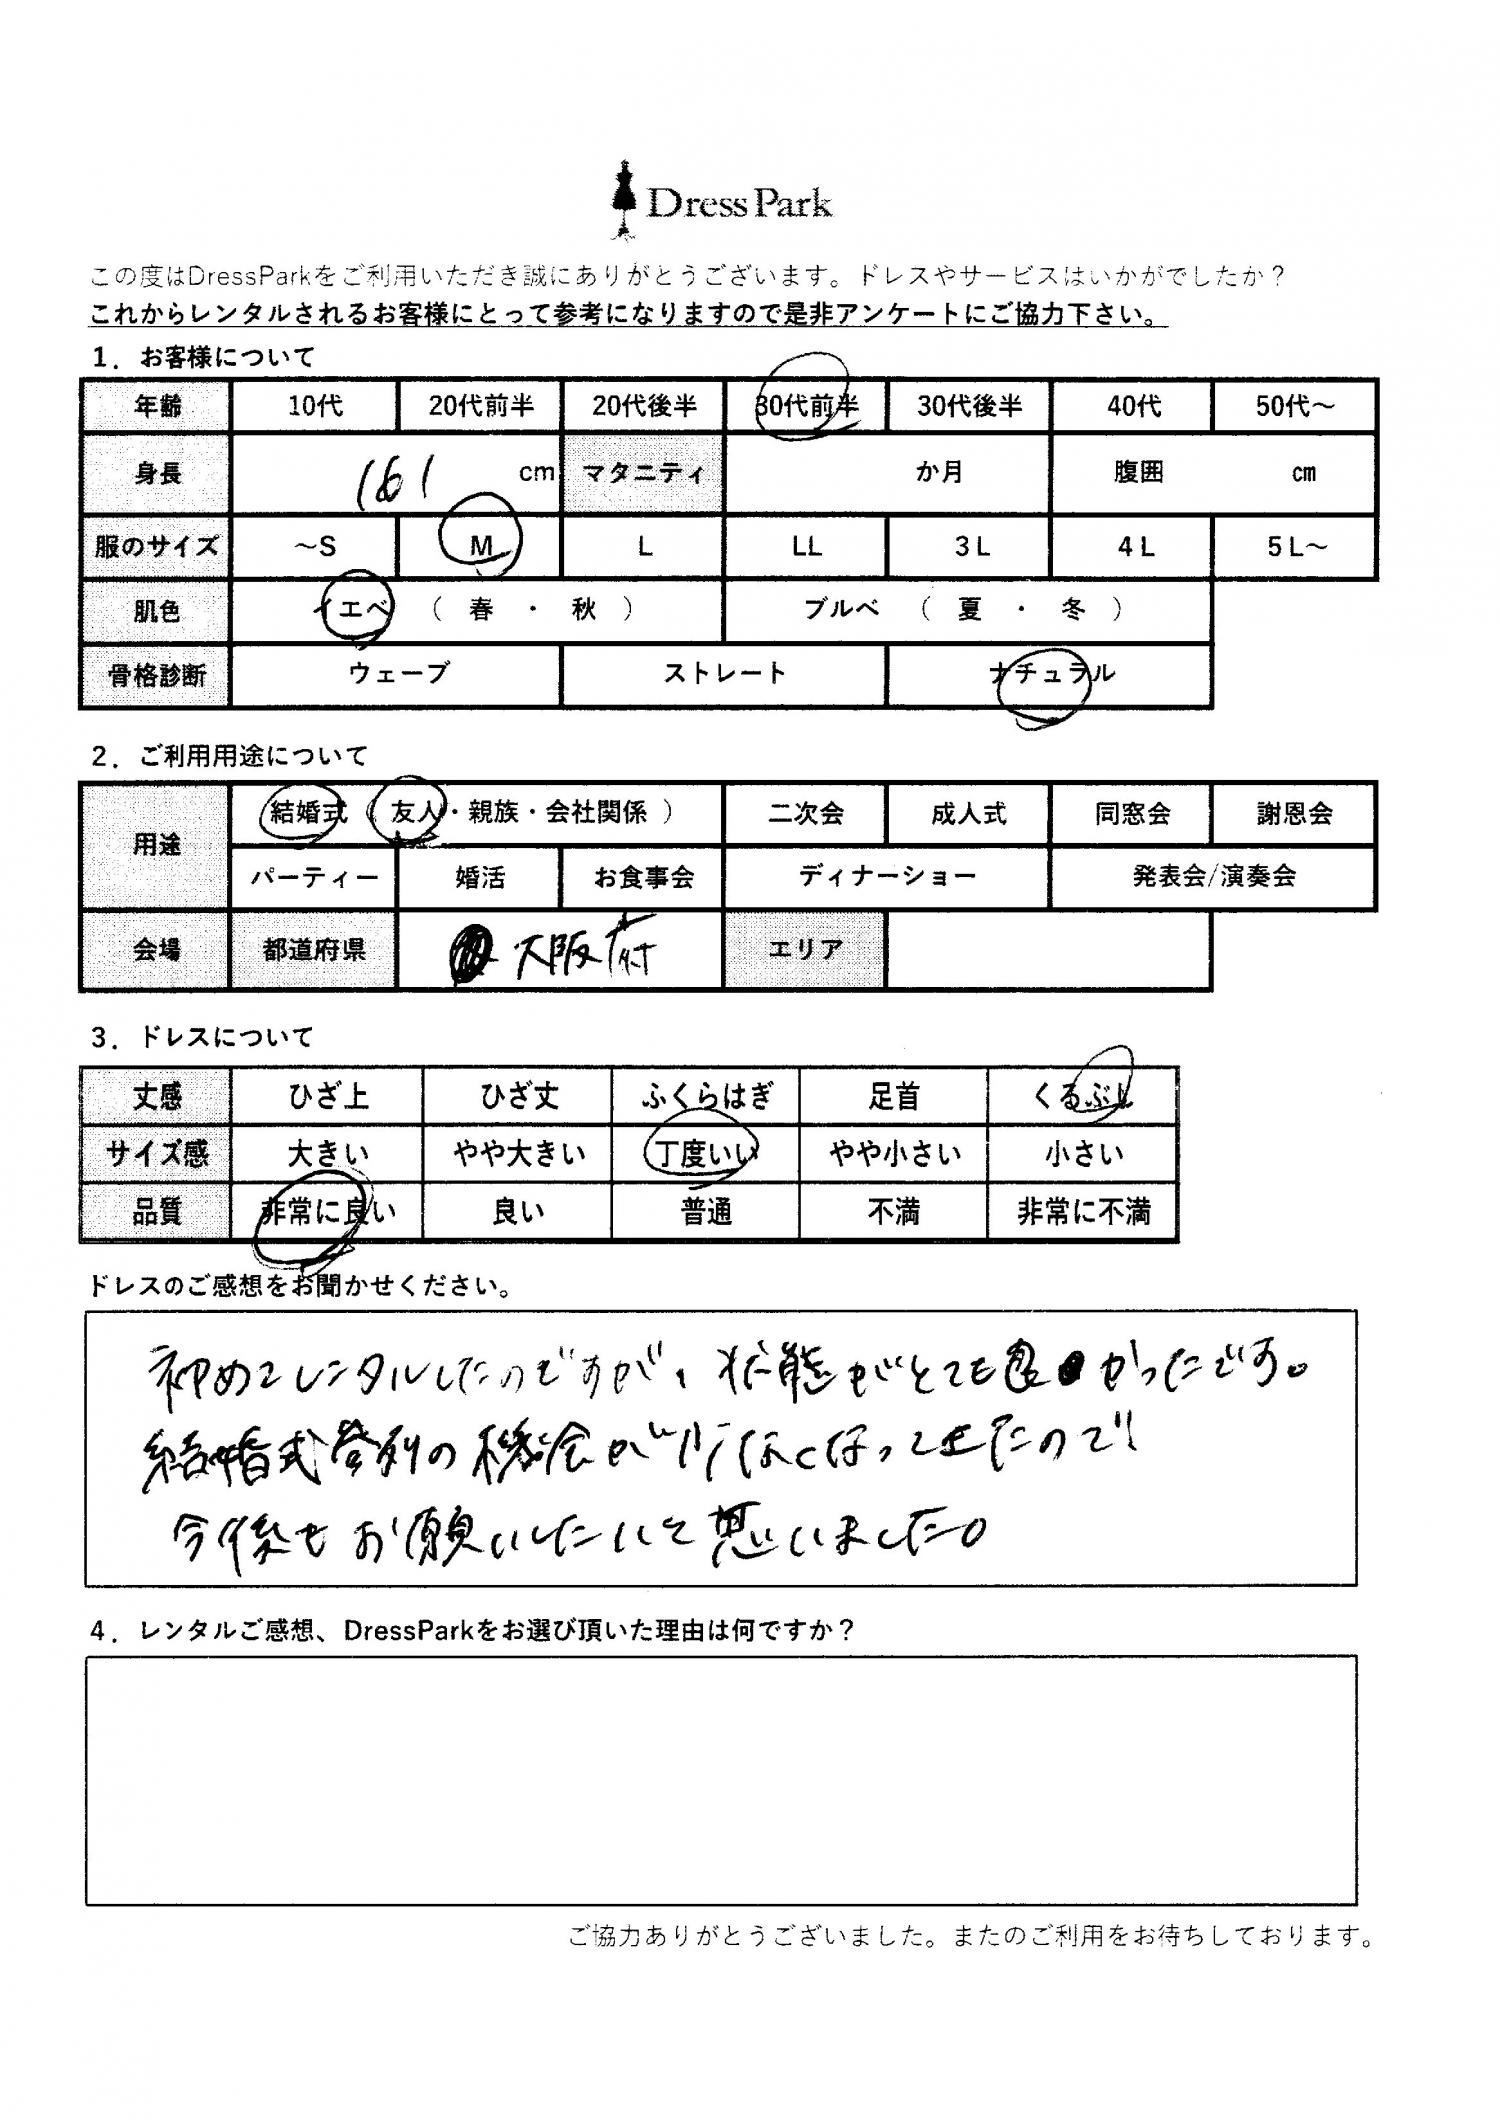 Dress Park
この度はDressParkをご利用いただき誠にありがとうございます。ドレスやサービスはいかがでしたか？
これからレンタルされるお客様にとって参考になりますので是非アンケートにご協力下さい。
1．お客様について
年齢 10代 20代前半 20代後半 30代前半 30代後半 40代 50代～
身長 161 cm マタニティ か月 腹囲 cm
服のサイズ ～S M L LL 3L 4L 5L～
肌色 イエベ （ 春 ・ 秋 ） ブルベ （ 夏 ・ 冬 ）
骨格診断 ウェーブ ストレート ナチュラル
2．ご利用用途について
用途 結婚式（ 友人・親族・会社関係 ） 二次会 成人式 同窓会 謝恩会
パーティー 婚活 お食事会 ディナーショー 発表会/演奏会
会場 都道府県 大阪府 エリア
3．ドレスについて
丈感 ひざ上 ひざ丈 ふくらはぎ 足首 くるぶし
サイズ感 大きい やや大きい 丁度いい やや小さい 小さい
品質 非常に良い 良い 普通 不満 非常に不満
ドレスのご感想をお聞かせください。
初めてレンタルしたのですが、状態がとても良かったです。
結婚式参列の機会が少なくなってきたので
今後もお願いしたいと思いました。
4．レンタルご感想、DressParkをお選び頂いた理由は何ですか？
ご協力ありがとうございました。またのご利用をお待ちしております。